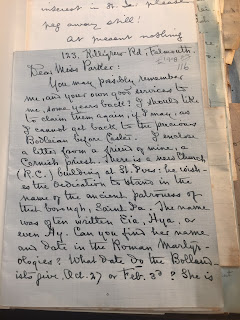 interest in St. Ia. please
peg away still!
At present nothing
123, Killigrew Rd. Falmouth.
116
Dear Miss Parker:
You may possibly remember
me, and your own good services to
me, some years back? I should like
to claim them again, if I may, as
I cannot get back to the precious
Bodleian before Easter. I enclose
a letter from a friend of mine, a
Cornish priest. There is a new Church
(R.C.) building at St. Ives: he wish-
es the dedication to stand in the
name of the ancient patroness of
that borough, Saint Ia. The name
was often written Eia, Hya, or
even Hy. Can you find her name
and date in the Roman Martyr-
ologies? What date do the Bolland-
ists give, Oct. 27 or Feb. 3rd? She is